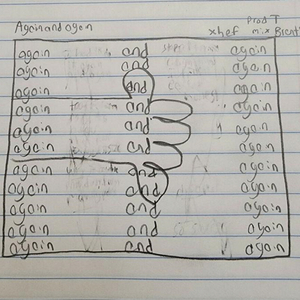 Againandagain
Prod T
xhef mix Bient
again and again
again and again
again and again
again and again
again and again
again and again
again and again
again and again
again and again
again and again
again and again